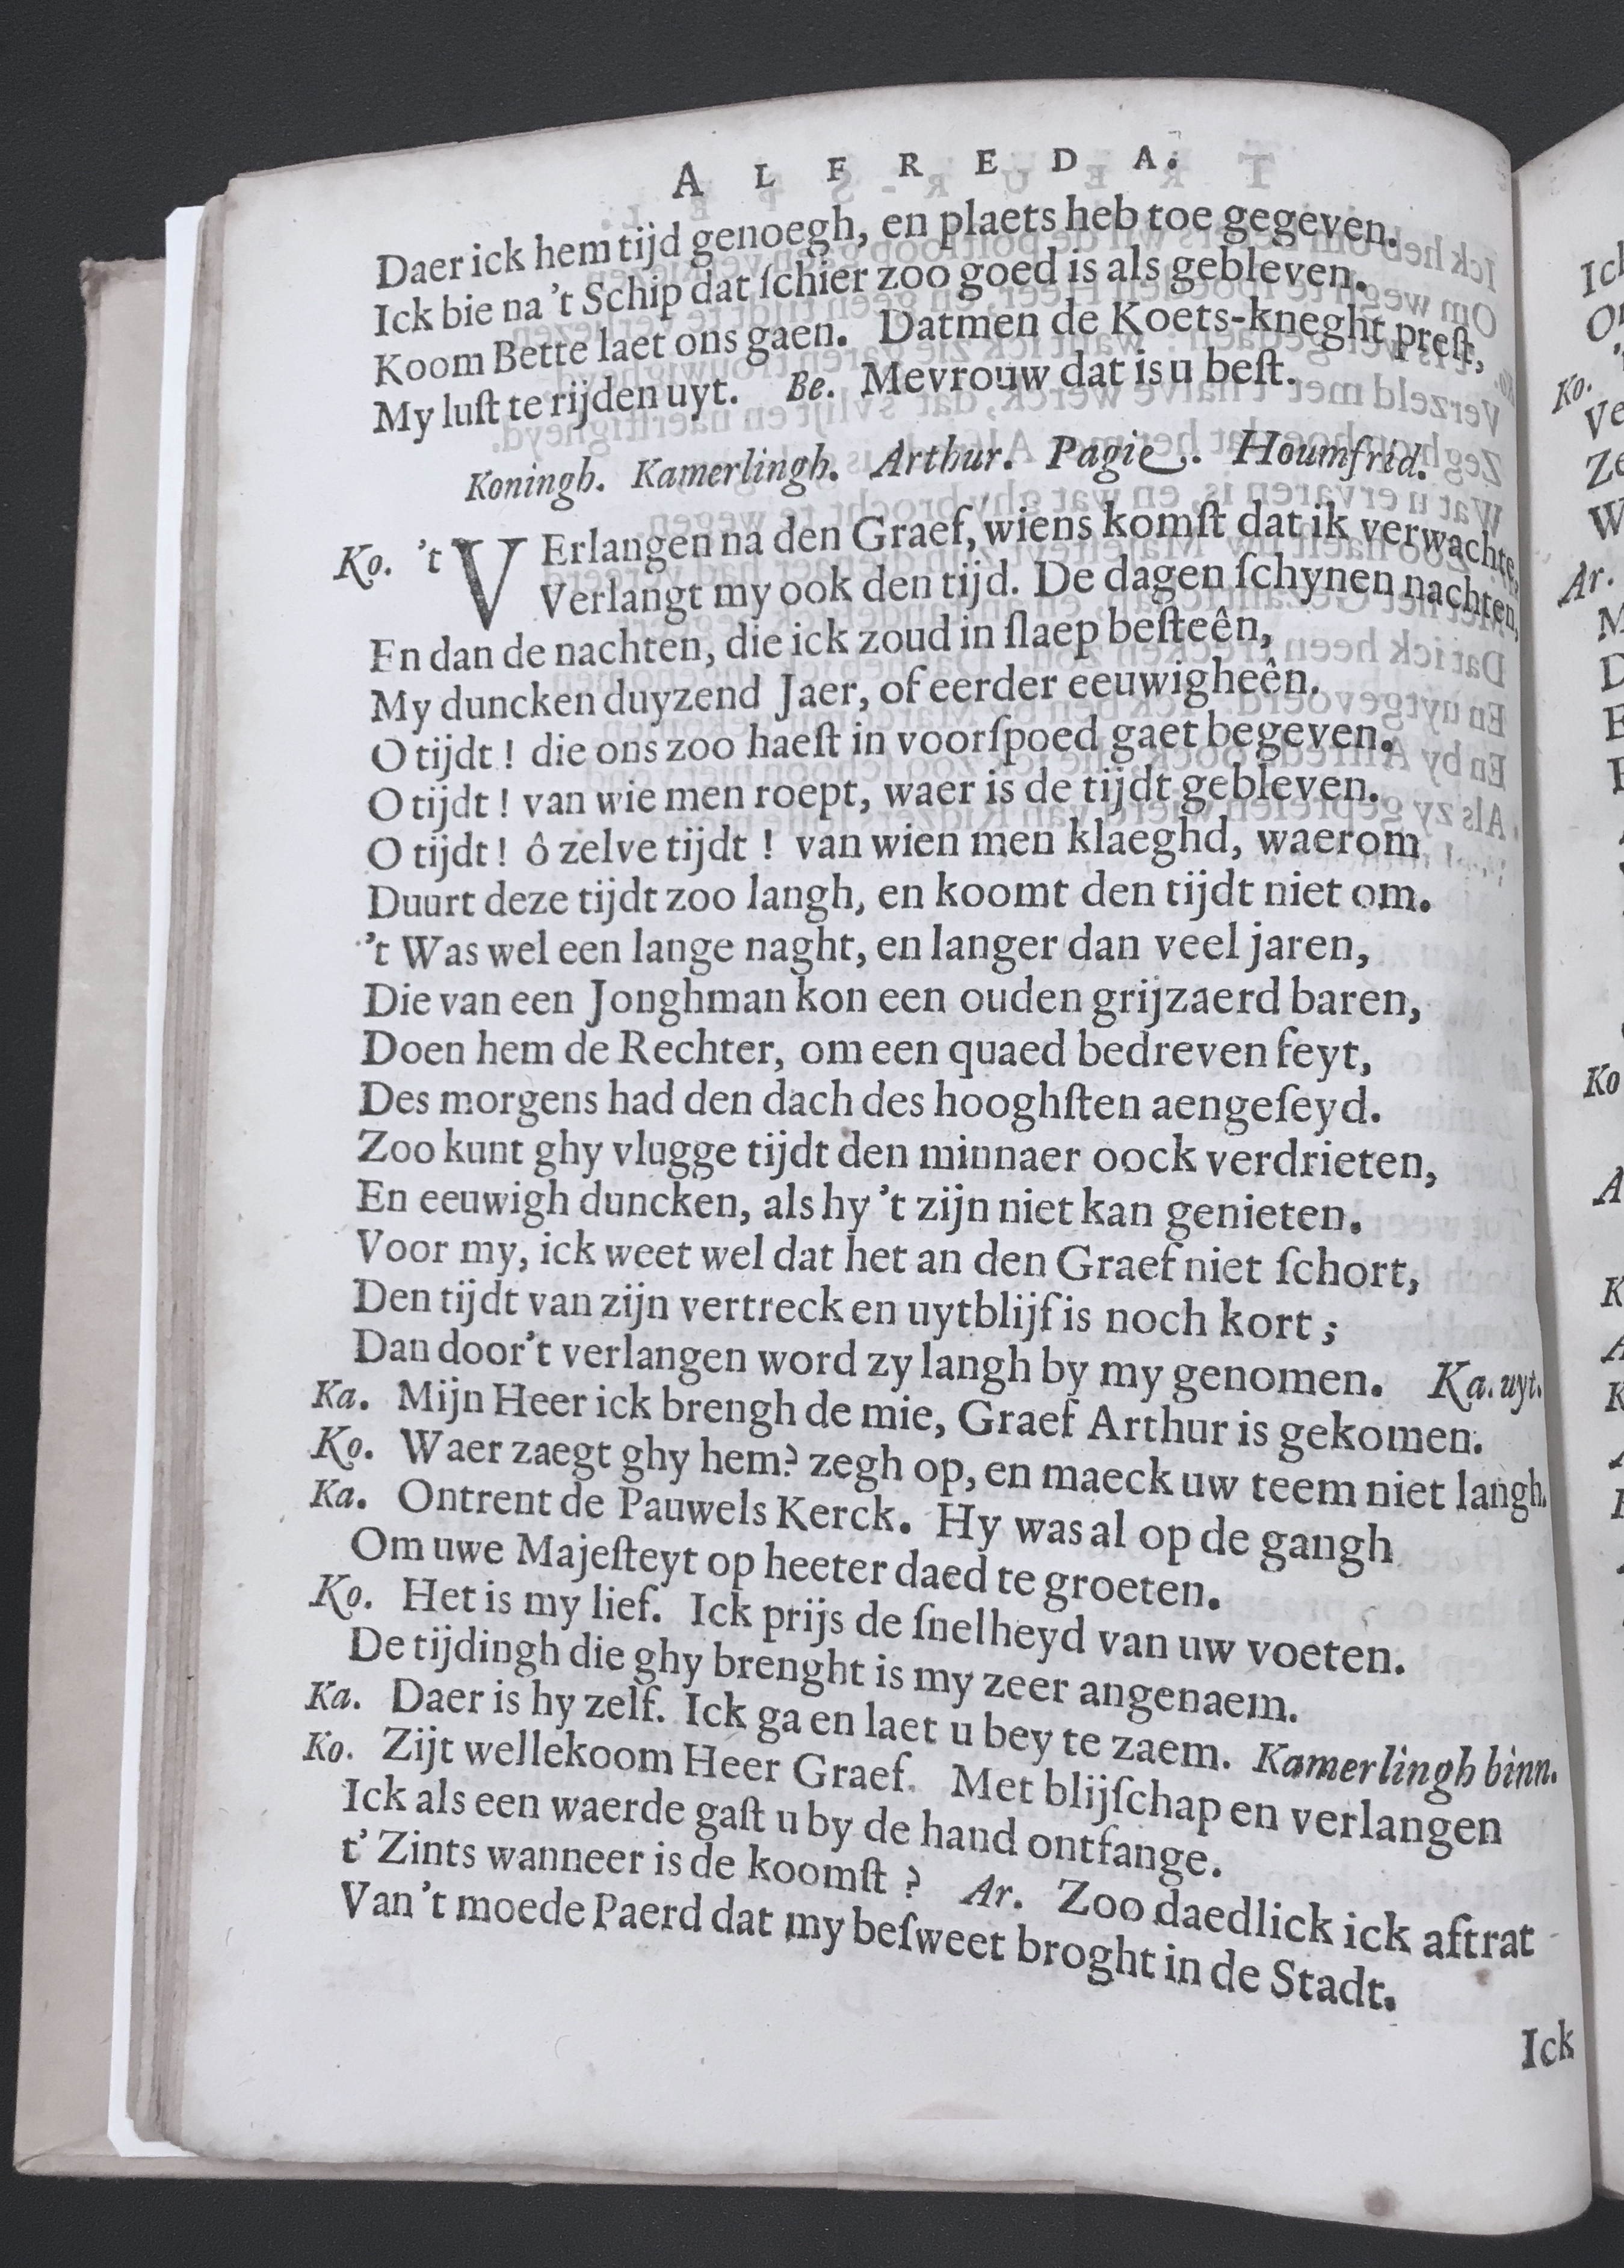 ALFREDA.
Daer ick hem tijd genoegh, en plaets heb toe gegeven.
Ick bie na 't Schip dat ſchier zoo goed is als gebleven.
Koom Bette laet ons gaen. Datmen de Koets-kneght preſt,
My luſt te rijden uyt. Be. Mevrouw dat is u beſt.
Koningh. Kamerlingh. Arthur. Pagie. Houmfrid.
Ko. 't VErlangen na den Graef, wiens komſt dat ik verwachte,
Verlangt my ook den tijd. De dagen ſchynen nachten,
En dan de nachten, die ick zoud in ſlaep beſteên,
My duncken duyzend Jaer, of eerder eeuwigheên.
O tijdt! die ons zoo haeſt in voorſpoed gaet begeven.
O tijdt! van wie men roept, waer is de tijdt gebleven.
O tijdt! ô zelve tijdt! van wien men klaeghd, waerom
Duurt deze tijdt zoo langh, en koomt den tijdt niet om.
't Was wel een lange naght, en langer dan veel jaren,
Die van een Jonghman kon een ouden grijzaerd baren,
Doen hem de Rechter, om een quaed bedreven feyt,
Des morgens had den dach des hooghſten aengeſeyd.
Zoo kunt ghy vlugge tijdt den minnaer oock verdrieten,
En eeuwigh duncken, als hy 't zijn niet kan genieten.
Voor my, ick weet wel dat het an den Graef niet ſchort,
Den tijdt van zijn vertreck en uytblijf is noch kort;
Dan door't verlangen word zy langh by my genomen. Ka. uyt.
Ka. Mijn Heer ick brengh de mie, Graef Arthur is gekomen.
Ko. Waer zaegt ghy hem? zegh op, en maeck uw teem niet langh.
Ka. Ontrent de Pauwels Kerck. Hy was al op de gangh
Om uwe Majeſteyt op heeter daed te groeten.
Ko. Het is my lief. Ick prijs de ſnelheyd van uw voeten.
De tijdingh die ghy brenght is my zeer angenaem.
Ka. Daer is hy zelf. Ick ga en laet u bey te zaem. Kamerlingh binn.
Ko. Zijt wellekoom Heer Graef. Met blijſchap en verlangen
Ick als een waerde gaſt u by de hand ontfange.
t' Zints wanneer is de koomſt? Ar. Zoo daedlick ick aftrat
Van 't moede Paerd dat my beſweet broght in de Stadt.
Ick